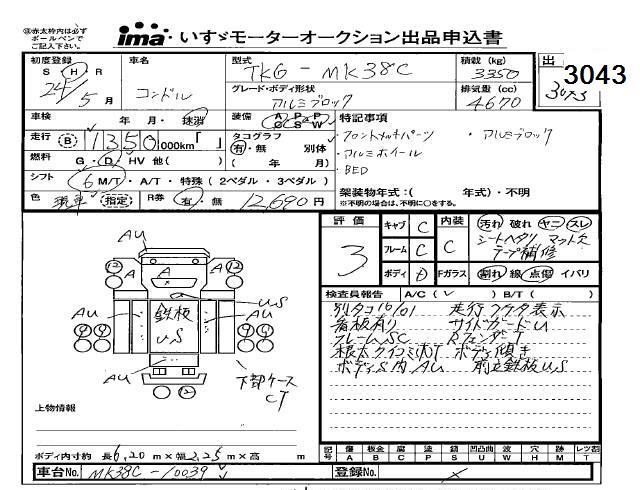 ※赤太枠内は必ず
ボールペンで
ご記入下さい。
ima・いすゞモーターオークション出品申込書
出
3043
3043
初度登録
S H R
24年 5月
車名
コンドル
型式
TKG - MK38C
積載 (kg)
3350
グレード・ボディ形状
アルミブロック
排気量 (cc)
4670
車検
年 月・抹消
装備 A P P
C S W
特記事項
・フロントメッキパーツ ・アルミブロック
・アルミホイール
・BED
走行 B 1350,000km「 」
タコグラフ
有・無 別体
( 年 月)
燃料 G・D・HV 他( )
シフト 6 M/T・A/T・特殊 (2ペダル・3ペダル)
架装物年式:( 年式)・不明
※不明の場合は、不明に○をする。
色 指定 R券 有・無 12,690円
評価
3
キャブ C
フレーム C
ボディ D
内装
C
Fガラス
汚れ 破れ ヤニ スレ
シートヘタリ マット欠
テープ補修
割れ 線 点傷 イバリ
検査員報告 A/C ( ✓ ) B/T ( )
別タコ16/01 走行メータ表示
看板有り サイドガードU
フレームSC Rフェンダー
ボディ傾き
ボディS内AU 前立鉄板US
AU
12
12
A
A
A
US
AU
AU
鉄板
US
AU
下部ケース
CT
上物情報
ボディ内寸約 長6,20m×幅2,25m×高 m
記号 傷 A 板金 B 腐 C 塗 P 錆 S 凹凸曲 U 波 W 穴 H 跡 M レツ割 T
車台No. MK38C-10039
登録No.